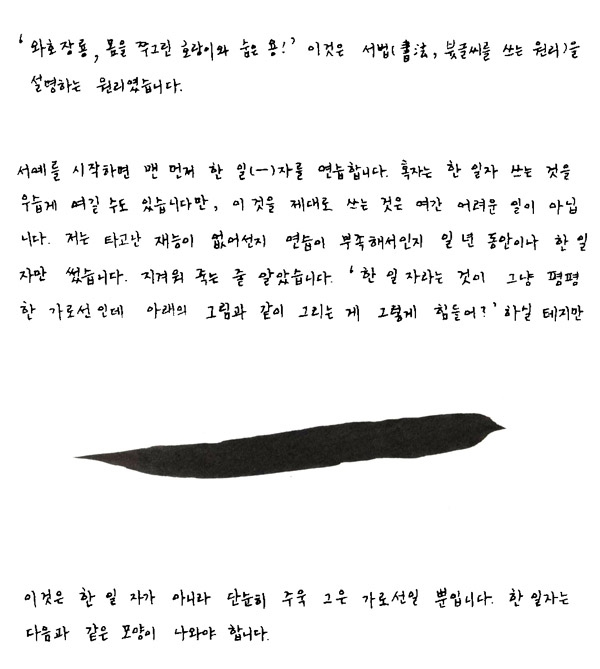 '와호장룡, 몸을 쭈그린 호랑이와 숨은 용!' 이것은 서법(書法, 붓글씨를 쓰는 원리)을
설명하는 원리였습니다.
서예를 시작하면 맨 먼저 한 일(一)자를 연습합니다. 혹자는 한 일자 쓰는 것을
우습게 여길 수도 있습니다만, 이것을 제대로 쓰는 것은 여간 어려운 일이 아닙
니다. 저는 타고난 재능이 없어선지 연습이 부족해서인지 일 년 동안이나 한 일
자만 썼습니다. 지겨워 죽는 줄 알았습니다. '한 일 자라는 것이 그냥 평평
한 가로선인데 아래의 그림과 같이 그리는 게 그렇게 힘들어?' 하실 테지만
이것은 한 일 자가 아니라 단순히 주욱 그은 가로선일 뿐입니다. 한 일자는
다음과 같은 모양이 나와야 합니다.